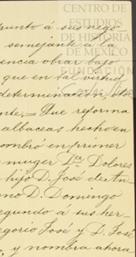 CENTRO DE
ESTUDIOS
DE HISTORIA
DE MÉXICO
FUNDACIÓN
punto á sus
semejante á la
encia obrar bajo
que en
determina
rte. Que reforma
albaceas hecho en
nombró en primer
muger Da. Dolores
hijo D. José
D. Domingo
segundo á sus her
gorio José y D. José
y nombra ahora